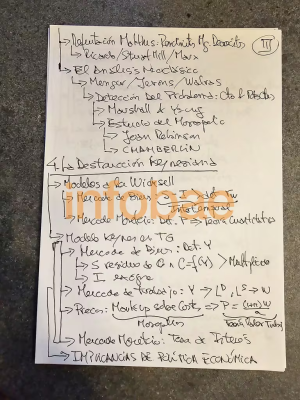 III
↳ Refutación Malthus:
↳ Ricardo/Stuart Mill/Marx
↳ El Análisis Neoclásico
↳ Menger/Jevons/Walras
↳ Detección del Problema: Cto &
↳ Marshall & Young
↳ Estudio del Monopolio
↳ Joan Robinson
↳ CHAMBERLIN
4. ↳ Destrucción Keynesiana
↳ Modelos a la Wicksell
↳ Mercado de Bienes
↳ Mercado Monetario: Det. P ⇒ Teoría Cuantitativa
infobae
↳ Modelo Keynes en TG
↳ Mercado de Bienes: Det. Y
↳ S residuo de C=f(Y) > Multiplicador
↳ I
↳ Mercado de Trabajo: Y → L^D, L^S → W
↳ Precios: Mark up sobre Costos ⇒ P = (1+m)W/a
Monopolios
↳ Mercado Monetario: Tasa de Interés
↳ IMPLICANCIAS DE POLÍTICA ECONÓMICA